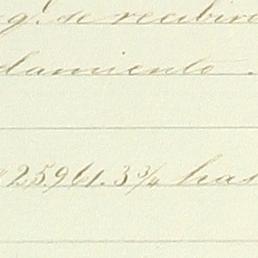 q.e de recibir
damiento.
25961.3¾ has